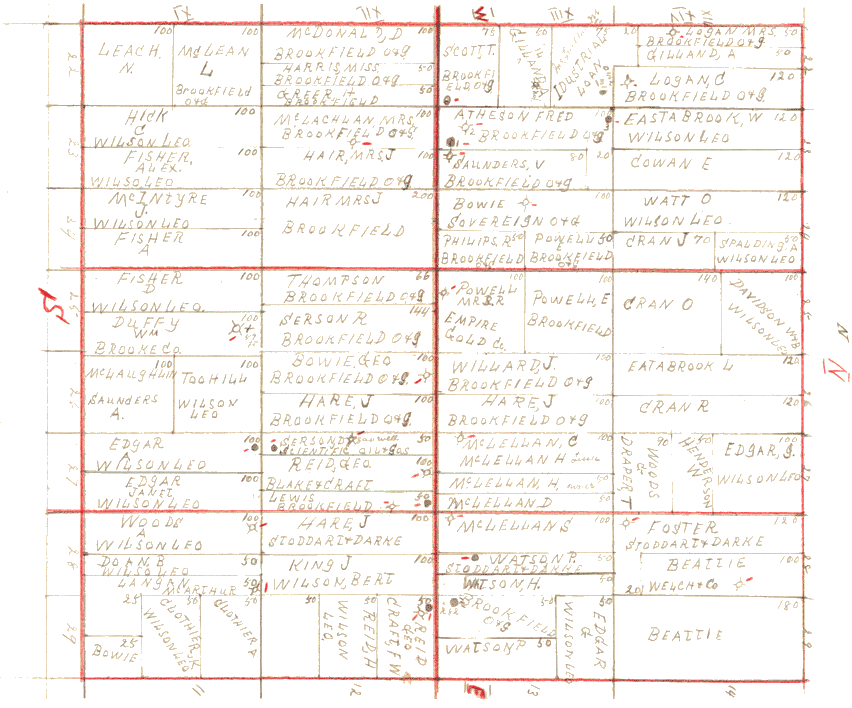 XI
XII
W
XIII
XIV
LEACH 100
N.
McLEAN 100
L
Brookfield
O&G
McDONALD, D 100
BROOKFIELD O&G
HARRIS MISS 50
BROOKFIELD O&G
GREER H 50
BROOKFIELD
SCOTT, T. 75
BROOKFI
ELD O&G
50
75
INDUSTRIAL
LOAN
20
LOGAN MRS, 50
BROOKFIELD O&G
GILLAND, A 50
LOGAN, C 120
BROOKFIELD O&G
22
HICK 100
C
WILSON LEO
FISHER, 100
ALEX.
WILSO LEO
McLACHLAN MRS, 100
BROOKFIELD O&G
HAIR, MRS J 100
BROOKFIELD O&G
ATHESON FRED 100
BROOKFIELD O&G
SAUNDERS, V 80
BROOKFIELD O&G
20
EASTABROOK, W 120
WILSON LEO
COWAN E 120
23
McINTYRE 100
J.
WILSON LEO
FISHER 100
A
HAIR MRS J 200
BROOKFIELD
BOWIE 100
SOVEREIGN O&G
PHILIPS, R 50
BROOKFIELD
O&G
POWELL 50
BROOKFIELD
O&G
WATT O 120
WILSON LEO
CRAN J 70
SPALDING, A 50
WILSON LEO
24
S
FISHER 100
D
WILSON LEO.
DUFFY 100
WM
BROOKE CO.
THOMPSON 66
BROOKFIELD O&G
SERSON R 144
BROOKFIELD O&G
POWELL 100
MRS. R
EMPIRE
GOLD Co.
POWELL, E 100
BROOKFIELD
CRAN O 140
DAVIDSON W&B
WILSON LEO
25
N
N
McLAUGHLIN 100
SAUNDERS
A.
TOOHILL 100
WILSON
LEO
BOWIE, GEO 100
BROOKFIELD O&G
HARE, J 100
BROOKFIELD O&G.
WILLARD, J. 100
BROOKFIELD O&G
HARE, J 100
BROOKFIELD O&G
EATABROOK L 120
CRAN R 120
26
EDGAR 100
A
WILSON LEO
EDGAR 100
JANET
WILSON LEO
SERSON D 50
SCIENTIFIC OIL & GAS
REID, GEO. 100
BLAKE & CRAFT
LEWIS 50
BROOKFIELD
McLELLAN, C 100
McLELLAN H
McLELLAN, H, 50
McLELLAN, D 50
90
WOODS
&
DRAPER T
50
HENDERSON
W
EDGAR, G. 100
WILSON LEO
27
WOODS 100
A
WILSON LEO
DOAN, B 50
WILSON LEO
LANGAN 50
McARTHUR
HARE, J 100
STODDART & DARKE
KING J 100
WILSON, BERT
McLELLAN S 100
WATSON P. 50
STODDART & DARKE
WATSON, H. 50
FOSTER 120
STODDART & DARKE
BEATTIE 100
20 WELCH & Co
28
25
25
BOWIE
CLOTHIER, JK 50
WILSON LEO
CLOTHIER A 50
50
WILSON 50
LEO
REID, H
CRAFT, F W
REID
GEO
BROOKFIELD 50
O&G
WATSON P 50
EDGAR 50
G
WILSON LEO
BEATTIE 180
29
11
12
E
13
14